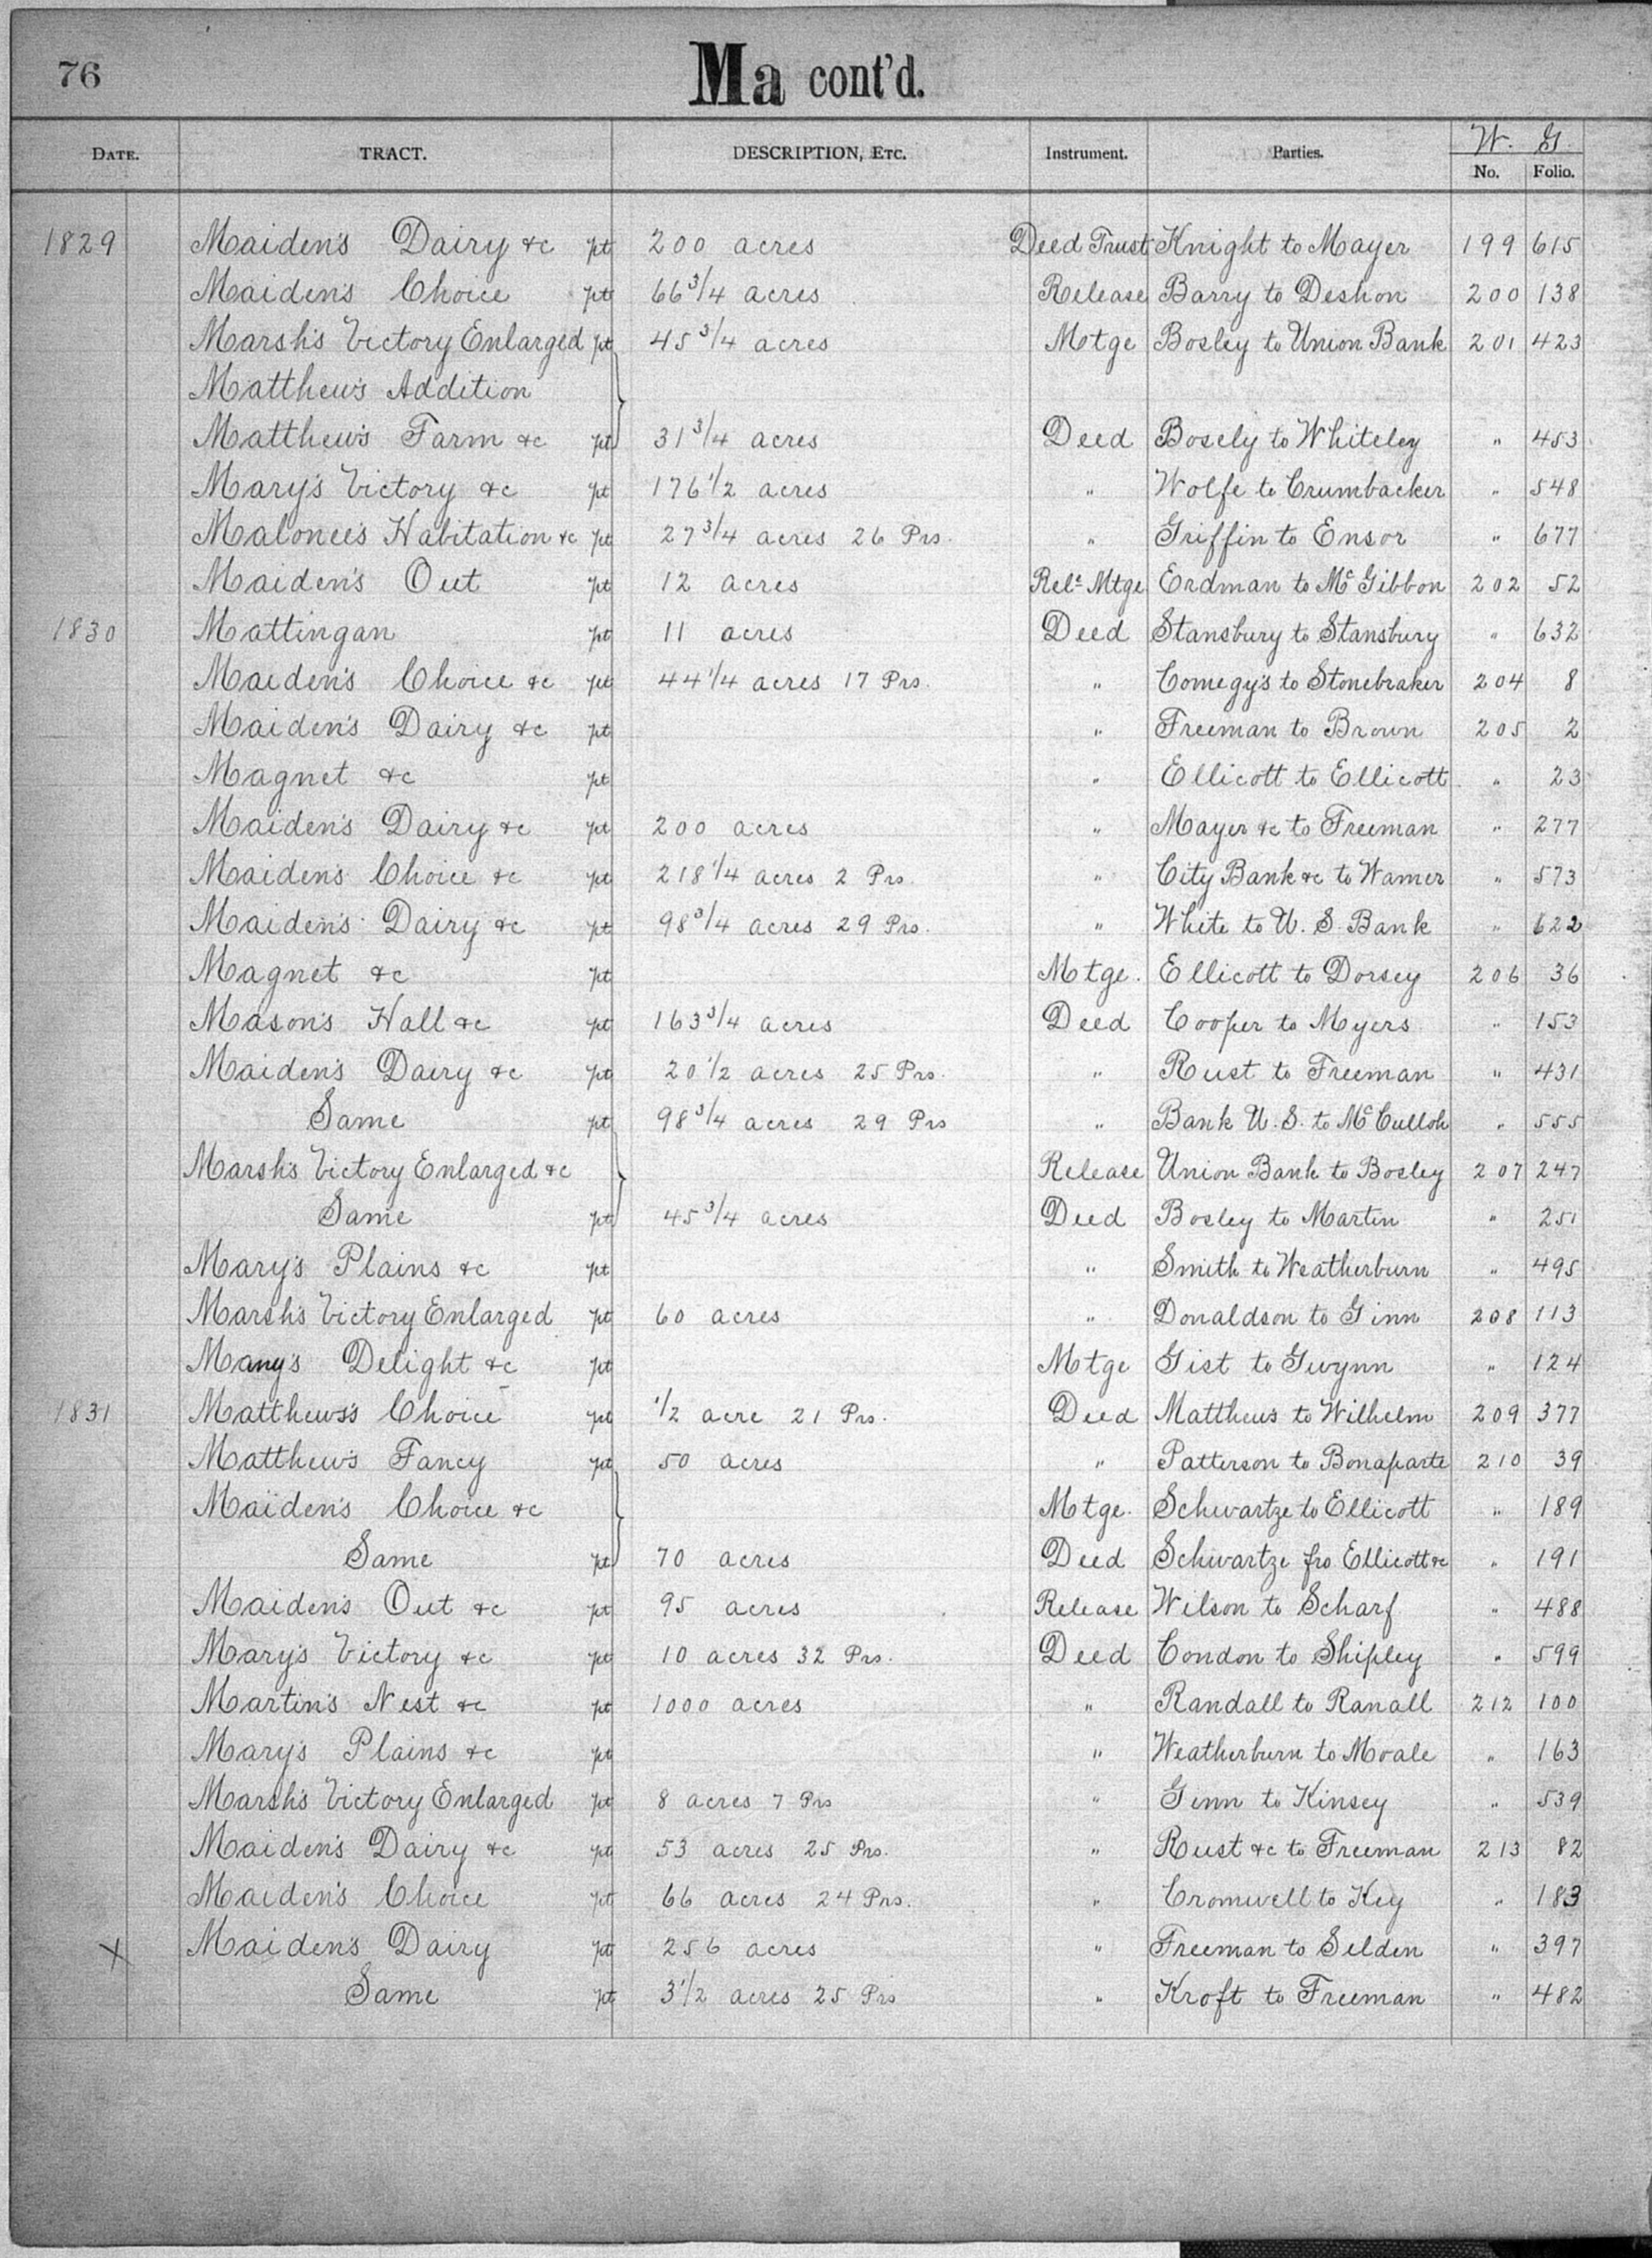 76
Ma cont'd.
DATE. TRACT. DESCRIPTION, ETC. Instrument. Parties. W. G. No. Folio.
1829 Maiden's Dairy &c pt 200 acres Deed Trust Knight to Mayer 199 615
Maiden's Choice pt 66 3/4 acres Release Barry to Deshon 200 138
Marsh's Victory Enlarged pt 45 3/4 acres Mtge Bosley to Union Bank 201 423
Matthew's Addition
Matthew's Farm &c pt 31 3/4 acres Deed Bosely to Whiteley " 453
Mary's Victory &c pt 176 1/2 acres " Wolfe to Crumbacker " 548
Malonee's Habitation &c pt 27 3/4 acres 26 Prs. " Griffin to Ensor " 677
Maiden's Out pt 12 acres Rele Mtge Erdman to McGibbon 202 52
1830 Mattingan pt 11 acres Deed Stansbury to Stansbury " 632
Maiden's Choice &c pt 44 1/4 acres 17 Prs. " Comegy's to Stonebraker 204 8
Maiden's Dairy &c pt " Freeman to Brown 205 2
Magnet &c pt " Ellicott to Ellicott " 23
Maiden's Dairy &c pt 200 acres " Mayer &c to Freeman " 277
Maiden's Choice &c pt 218 1/4 acres 2 Prs. " City Bank &c to Warner " 573
Maiden's Dairy &c pt 98 3/4 acres 29 Prs. " White to U. S. Bank " 622
Magnet &c pt Mtge. Ellicott to Dorsey 206 36
Mason's Hall &c pt 163 3/4 acres Deed Cooper to Myers " 153
Maiden's Dairy &c pt 20 1/2 acres 25 Prs. " Rust to Freeman " 431
Same pt 98 3/4 acres 29 Prs " Bank U. S. to McCulloh " 555
Marsh's Victory Enlarged &c Release Union Bank to Bosley 207 247
Same pt 45 3/4 acres Deed Bosley to Martin " 251
Mary's Plains &c pt " Smith to Weatherburn " 495
Marsh's Victory Enlarged pt 60 acres " Donaldson to Ginn 208 113
Many's Delight &c pt Mtge Gist to Gwynn " 124
1831 Matthews's Choice pt 1/2 acre 21 Prs. Deed Matthews to Wilhelm 209 377
Matthew's Fancy pt 50 acres " Patterson to Bonaparte 210 39
Maiden's Choice &c Mtge. Schwartze to Ellicott " 189
Same pt 70 acres Deed Schwartze fro Ellicott &c " 191
Maiden's Out &c pt 95 acres Release Wilson to Scharf " 488
Mary's Victory &c pt 10 acres 32 Prs. Deed Condon to Shipley " 599
Martin's Nest &c pt 1000 acres " Randall to Ranall 212 100
Mary's Plains &c pt " Weatherburn to Moale " 163
Marsh's Victory Enlarged pt 8 acres 7 Prs " Ginn to Kinsey " 539
Maiden's Dairy &c pt 53 acres 25 Prs. " Rust &c to Freeman 213 82
Maiden's Choice pt 66 acres 24 Prs. " Cromwell to Key " 183
X Maiden's Dairy pt 256 acres " Freeman to Selden " 397
Same pt 3 1/2 acres 25 Prs " Kroft to Freeman " 482